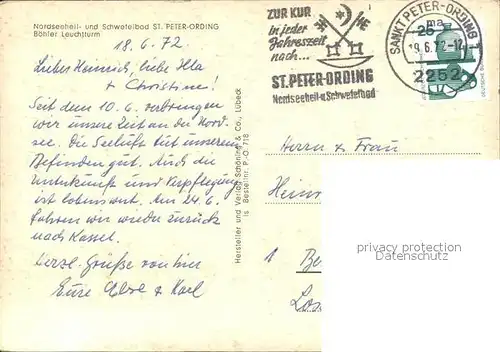 Nordseeheil- und Schwefelbad ST. PETER-ORDING
Böhler Leuchtturm
18.6.72
Liebe Heinrich, liebe Illa
+ Christine!
Seit dem 10.6. verbringen
wir unsere Zeit an der Nord-
see. Die Seeluft tut unserem
Befinden gut. Auch die
Unterkunft und Verpflegung
ist lobenswert. Am 24.6.
fahren wir wieder zurück
nach Kassel.
Herzl. Grüße von hier
Eure und Karl
Hersteller und Verlag Schöning & Co., Lübeck
Bestellnr. P.-O 718
ZUR KUR
in jeder
Jahreszeit
nach...
ST. PETER-ORDING
Nordseeheil-u. Schwefelbad
SANKT PETER-ORDING
ma
19.6.72-12
2252
25
Herrn & Frau
Hein
1 Be
Los
privacy protection
Datenschutz